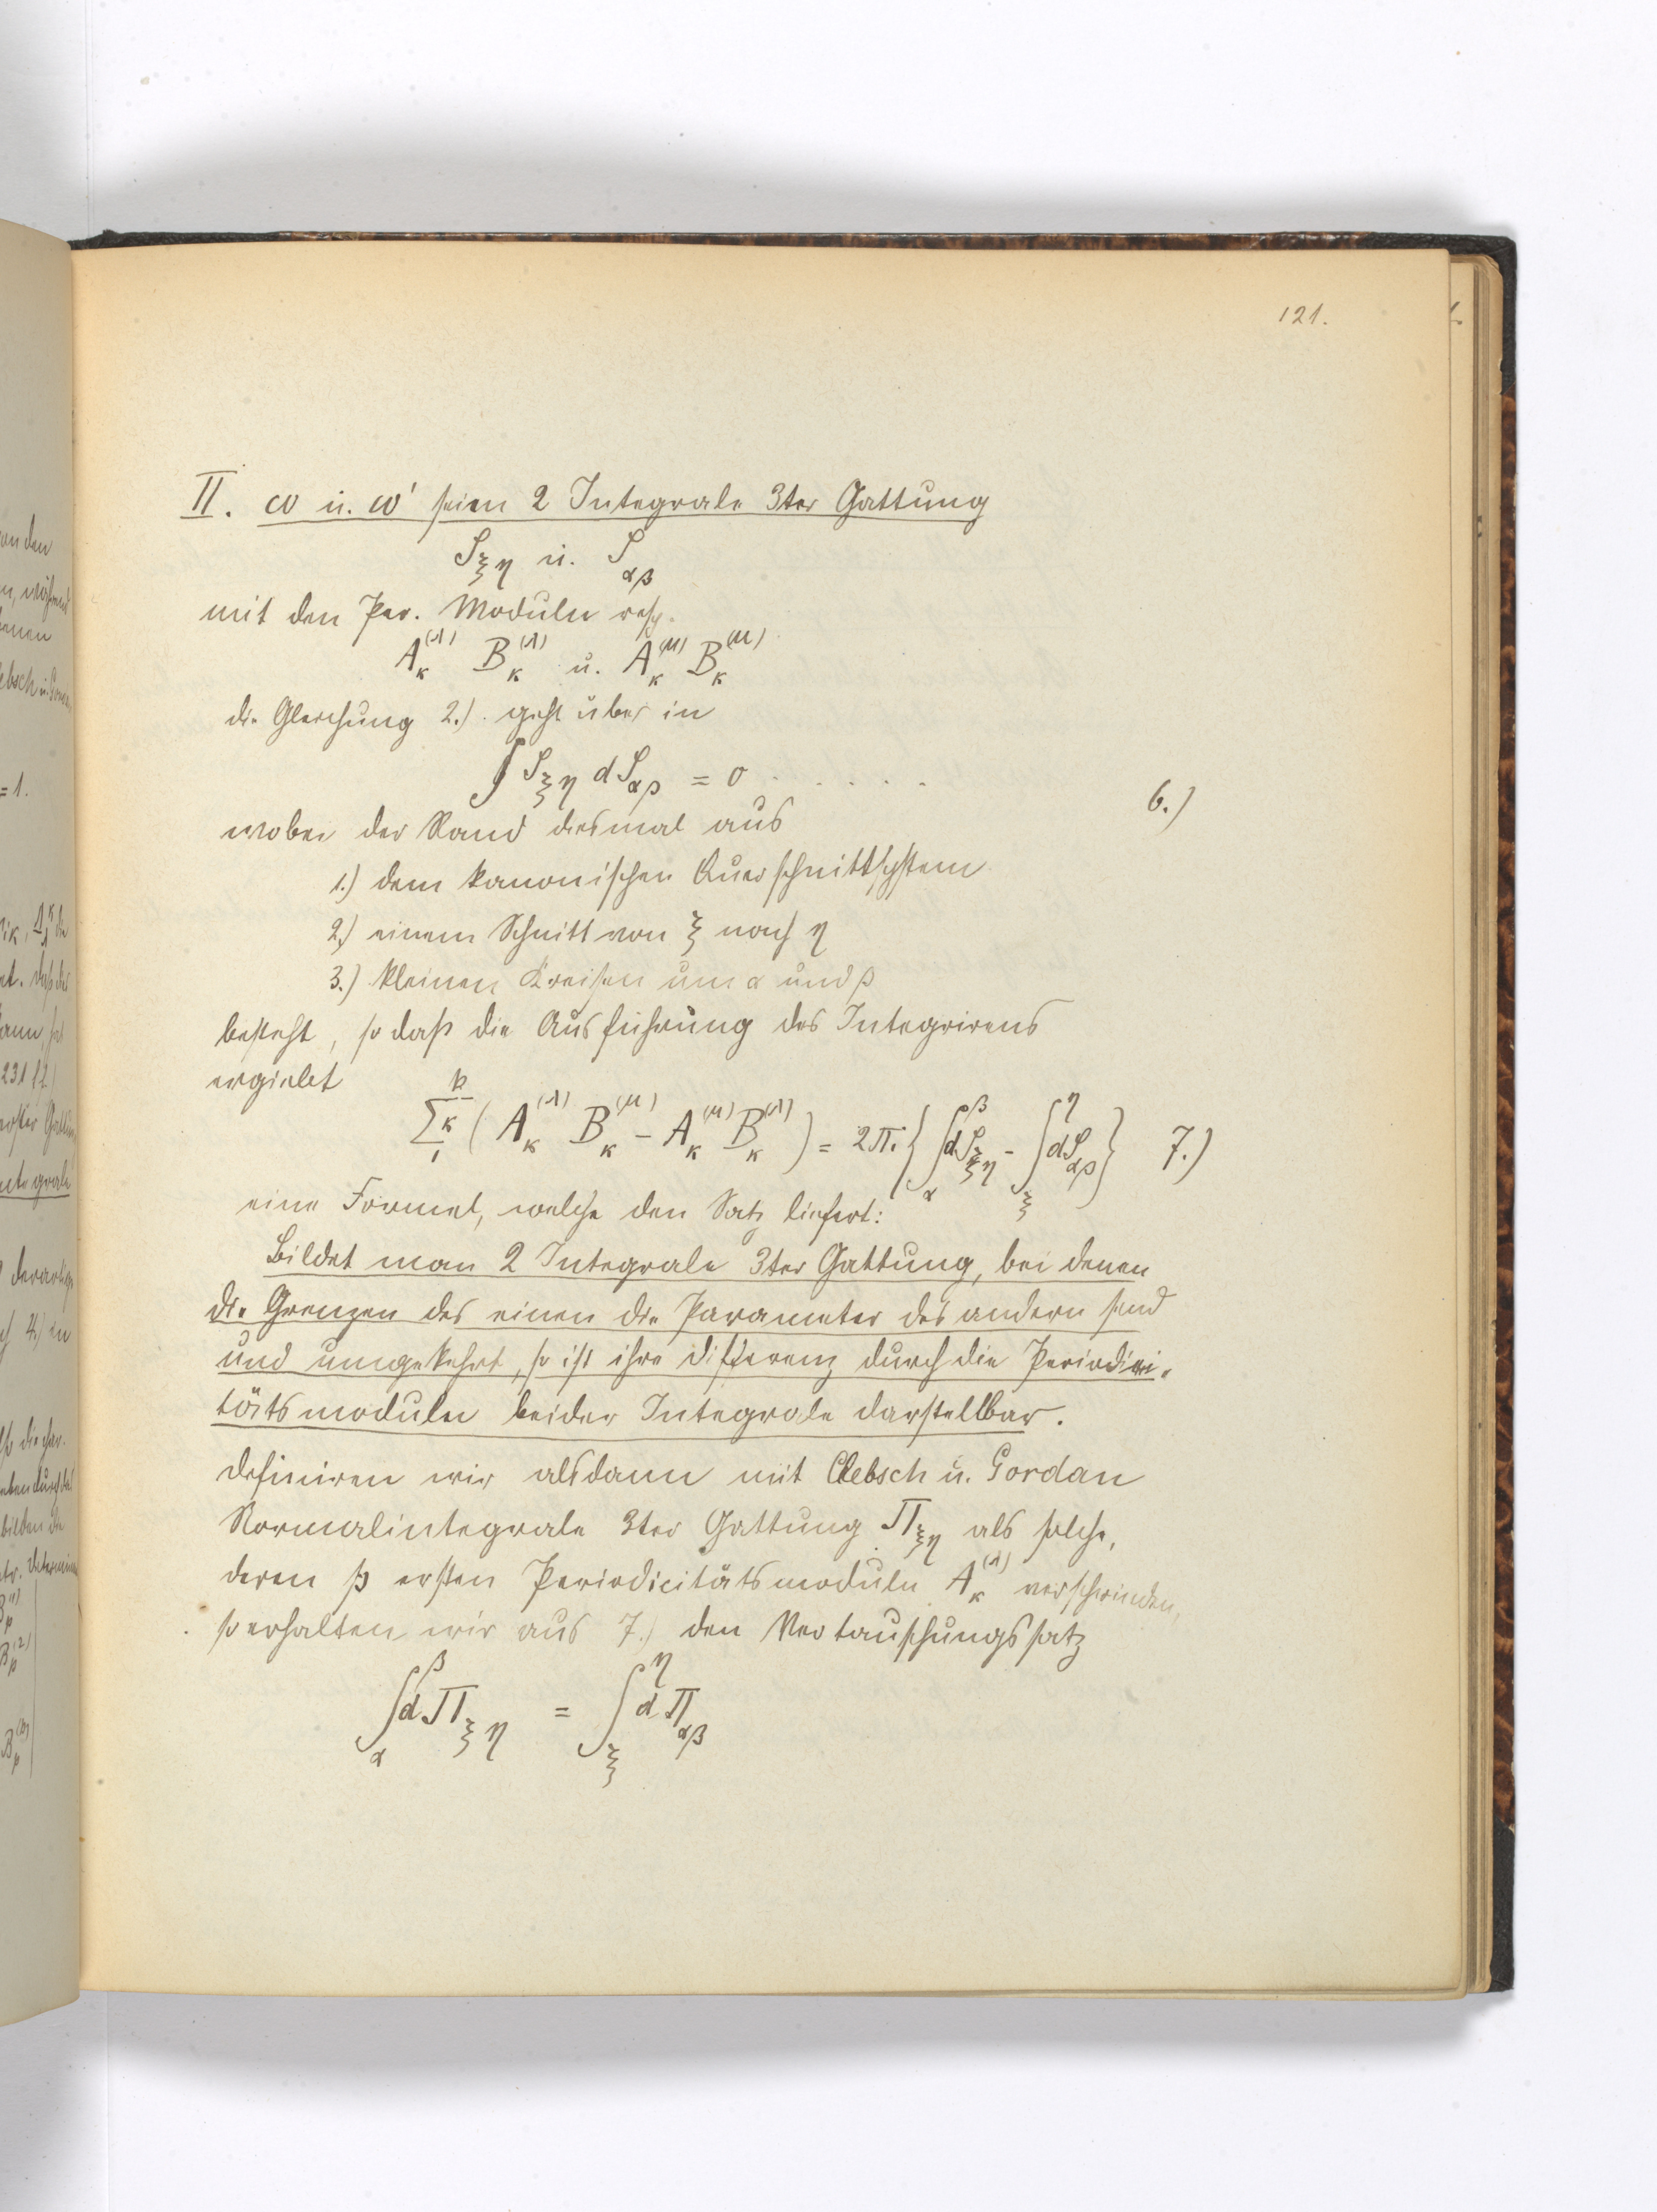 121.
II. ω u. ω' seien 2 Integrale 3ter Gattung
S_ξη u. S_αβ
mit den Per. Moduln resp.
A_κ^(λ) B_κ^(λ) u. A_κ^(μ) B_κ^(μ)
die Gleichung 2.) geht über in
∫ S_ξη dS_αβ = 0 . . . . . 6.)
wobei der Rand diesmal aus
1.) dem kanonischen Querschnittsystem
2.) einem Schnitt von ξ nach η
3.) kleinen Kreisen um α und β
besteht, so daß die Ausführung des Integrirens
ergiebt
∑_1^p κ (A_κ^(λ) B_κ^(μ) - A_κ^(μ) B_κ^(λ)) = 2πi {∫_α^β dS_ξη - ∫_ξ^η dS_αβ} 7.)
eine Formel, welche den Satz liefert:
Bildet man 2 Integrale 3ter Gattung, bei denen
die Grenzen des einen die Parameter des andern sind
und umgekehrt, so ist ihre Differenz durch die Periodici-
tätsmoduln beider Integrale darstellbar.
Definiren wir alsdann mit Clebsch u. Gordan
Normalintegrale 3ter Gattung Π_ξη als solche,
deren p ersten Periodicitätsmoduln A_κ^(λ) verschwinden,
so erhalten wir aus 7.) den Vertauschungssatz
∫_α^β dΠ_ξη = ∫_ξ^η dΠ_αβ